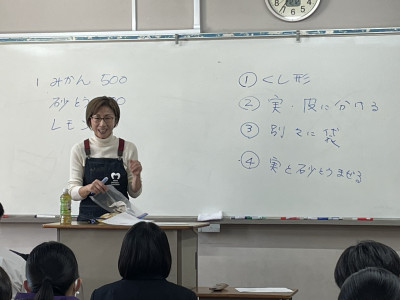 1 みかん 500
砂とう
レモン
① くし形
② 実・皮に分ける
③ 別々に袋
④ 実と砂とうまぜる